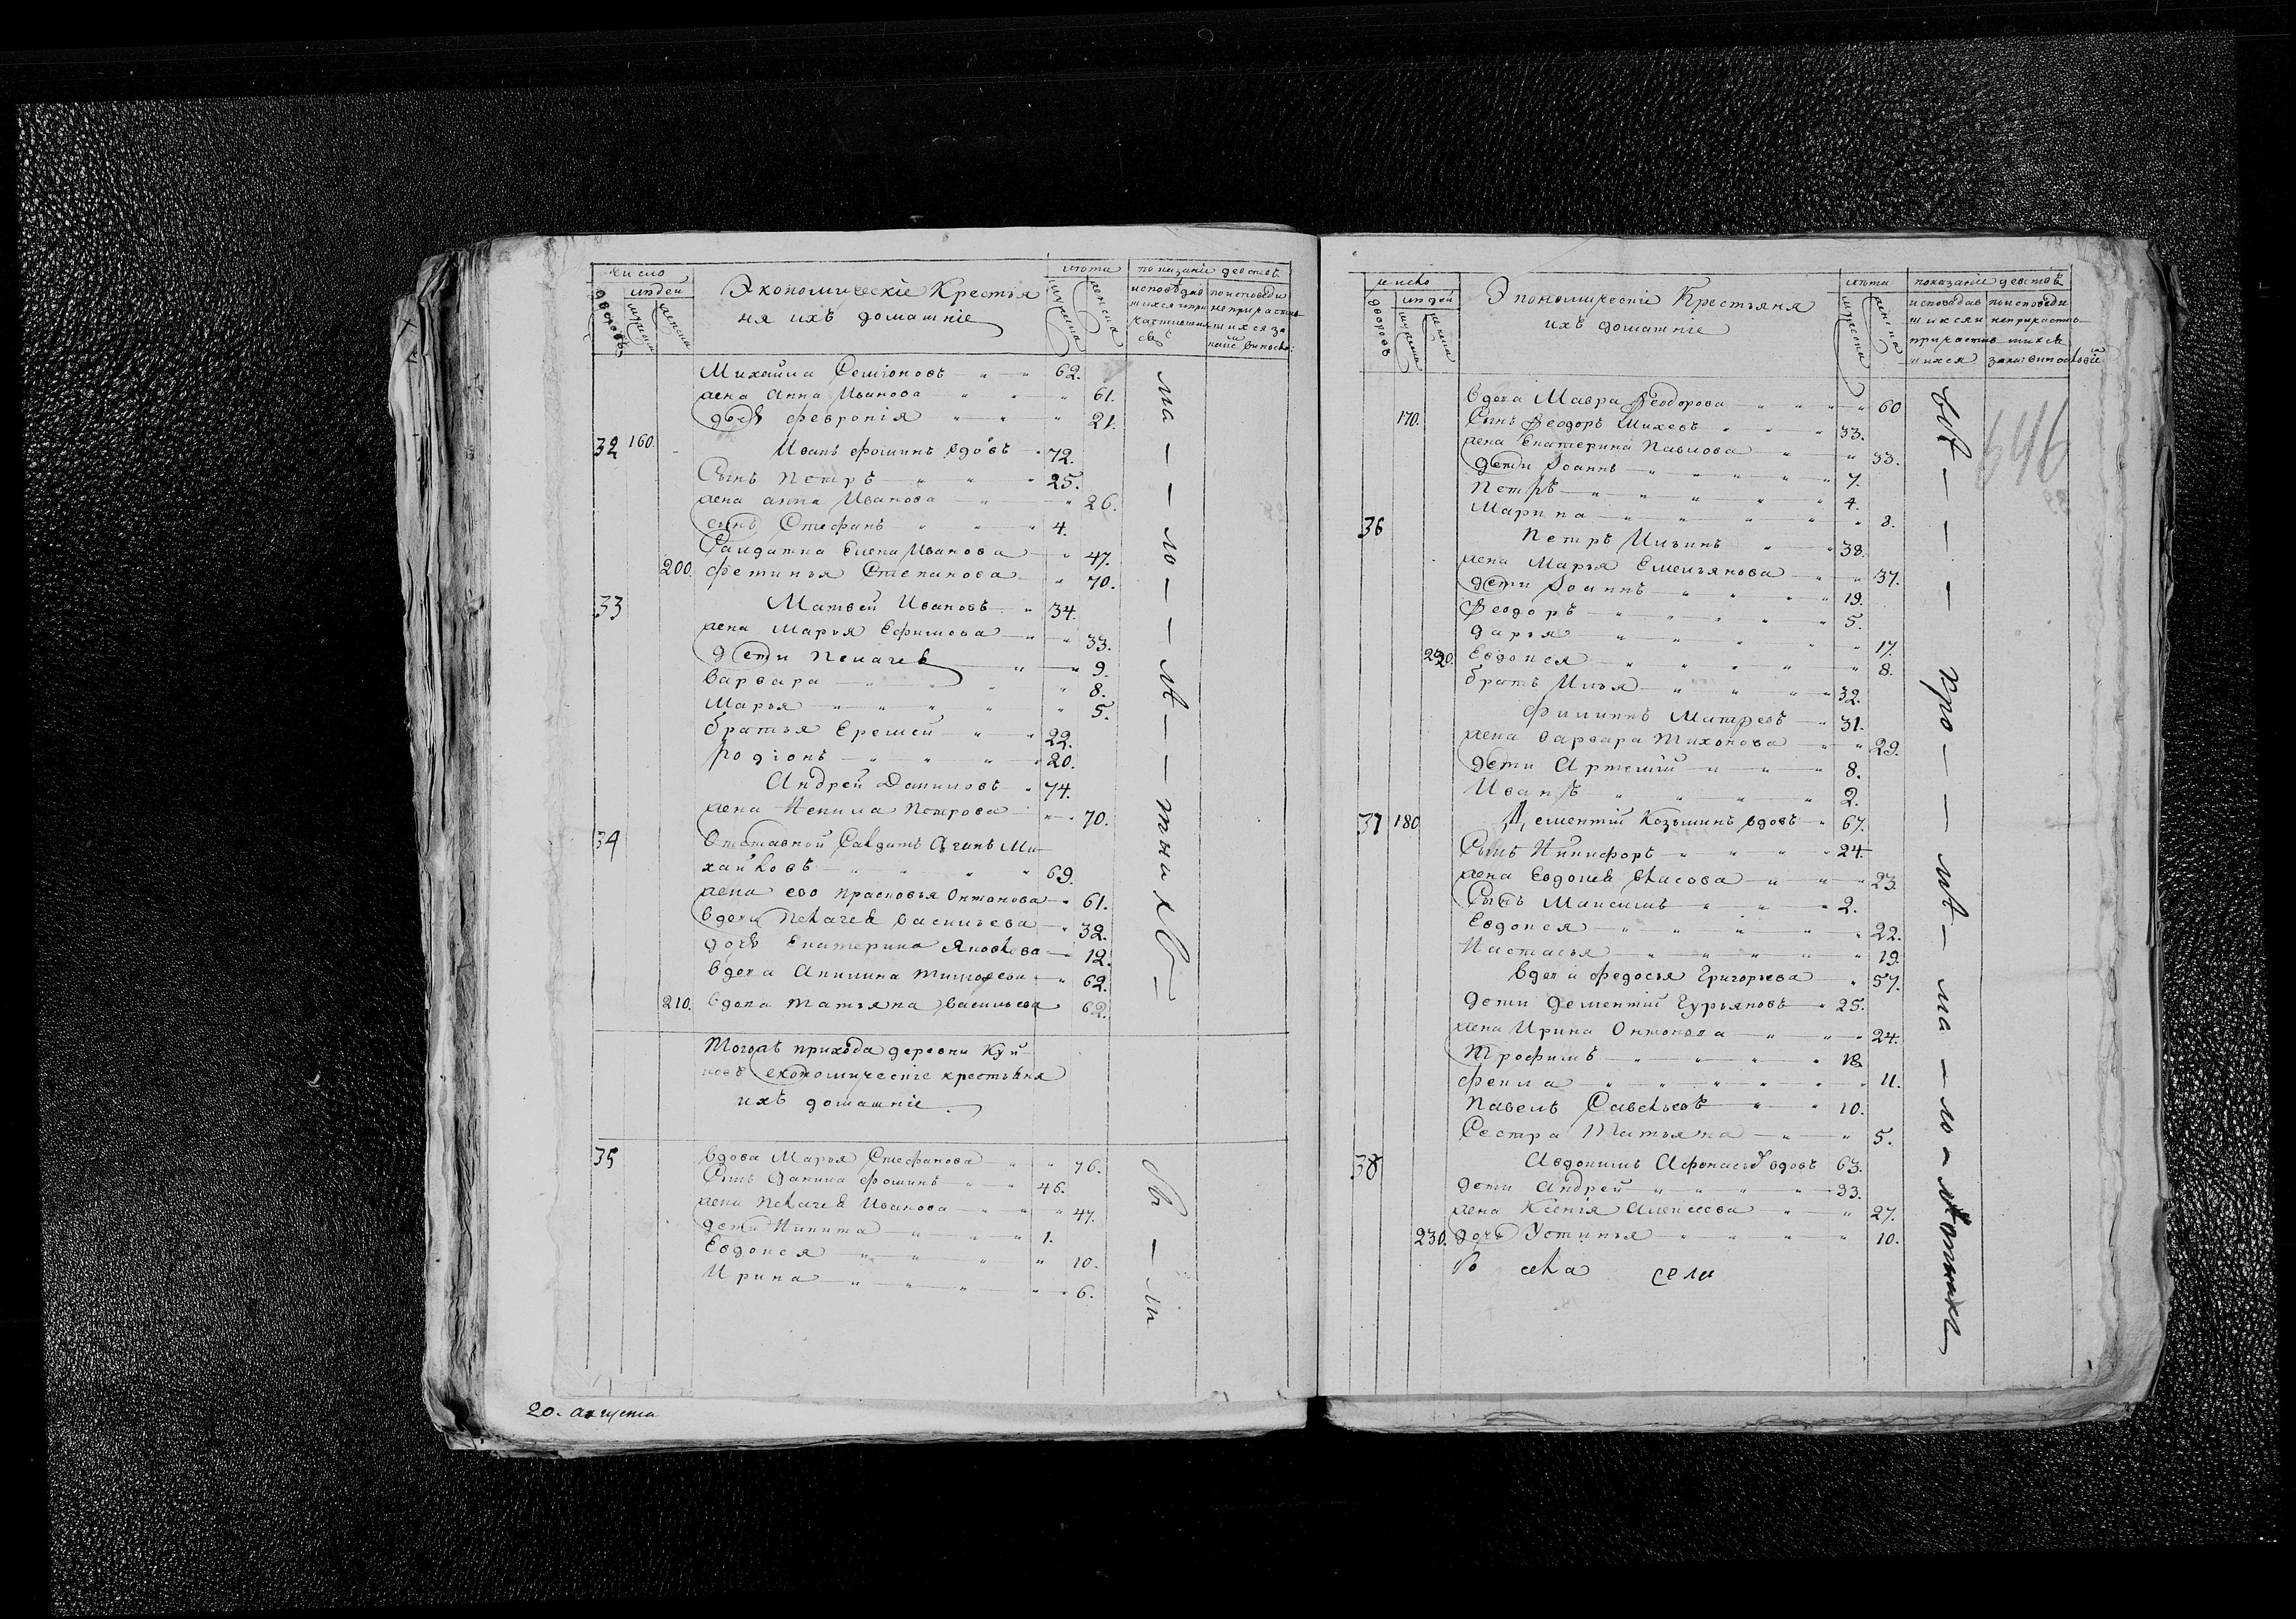 число
людей
дворовъ
мужеска
женска
Экономическіе Крестья
ня ихъ домашніе
лѣта
мужеска
женска
показаніе действъ
исповѣдав
шихся и при
по исповеди
не причаст
Михайла Семіоновъ 62.
жена Анна Иванова 61.
дочь Февронія 21.
32 160. Иванъ Фоминъ вдовъ 72.
Сынъ Петръ 25.
жена Анна Иванова 26.
сынъ Стефанъ 4.
Салдатка Елена Иванова 47.
200. Фетинья Степанова 70.
33 Матвей Ивановъ 34.
жена Марья Ефимова 33.
дети Пелагея 9.
Варвара 8.
Марья 5.
братья Еремей 22.
Родіонъ 20.
Андрей Даниловъ 74.
жена Ненила Петрова 70.
34 Отставной Салдатъ Агапъ Ми
хайловъ 69.
жена ево Прасковья Онтонова 61.
вдова Пелагея Васильева 32.
дочь Екатерина Яковлева 12.
вдова Акилина Тимофеева 62.
210. вдова Татьяна Васильева 62.
Тогожъ прихода деревни Куй
економическіе крестьяня
ихъ домашніе
35 вдова Марья Стефанова 76.
Сынъ Данила Фоминъ 46.
жена Пелагея Иванова 47.
дети Никита 1.
Евдокея 10.
Ирина 6.
ма — ло — лѣ — тныхъ
бы — ли
20. августа
число
людей
дворовъ
мужеска
женска
Экономическіе Крестьяня
ихъ домашніе
лѣта
мужеска
женска
показаніе действъ
исповѣдав
шихся и
причастив
шихся
по исповеди
непричастив
шихся
946
вдова Мавра Феодорова 60
170. Сынъ Феодоръ Михеевъ 33.
жена Екатерина Павлова 33.
дети Іоаннъ 7.
Петръ 4.
Марина 8.
36 Петръ Ильинъ 38.
жена Марья Емельянова 37.
дети Іоаннъ 19.
Феодоръ 5.
Дарья 17.
220. Евдокея 8.
братъ Илья 32.
Филиппъ Матфеевъ 31.
жена Варвара Тихонова 29.
дети Артемій 8.
Иванъ 2.
37 180 Дементій Козьминъ вдовъ 67.
Сынъ Никифоръ 24.
жена Евдокея Власова 23.
Сынъ Максимъ 2.
Евдокея 22.
Настасья 19.
вдова Федосья Григорьева 57.
дети Дементій Гурьяновъ 25.
жена Ирина Онтонова 24.
Трофимъ 18.
Фекла 11.
Павелъ Савельевъ 10.
Сестра Татьяна 5.
38 Авдокимъ Афонасьевъ вдовъ 63.
дети Андрей 33.
жена Ксенія Алексеева 27.
230. дочь Устинья 10.
села
всѣ — кро — мѣ — ма — ло — лѣтныхъ